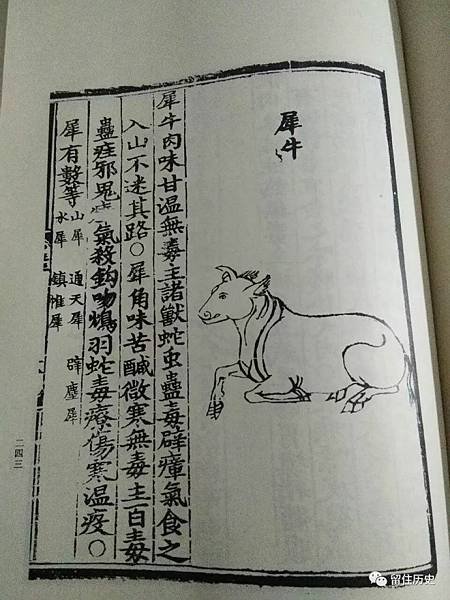 犀牛
犀牛肉味甘溫無毒主諸獸蛇虫蠱毒辟瘴氣食之
入山不迷其路〇犀角味苦醎微寒無毒主百毒
蠱疰邪鬼 氣殺鈎吻鴆羽蛇毒療傷寒溫疫〇
犀有數等山犀 通天犀 辟塵犀
水犀 鎮帷犀
二四三
留住历史